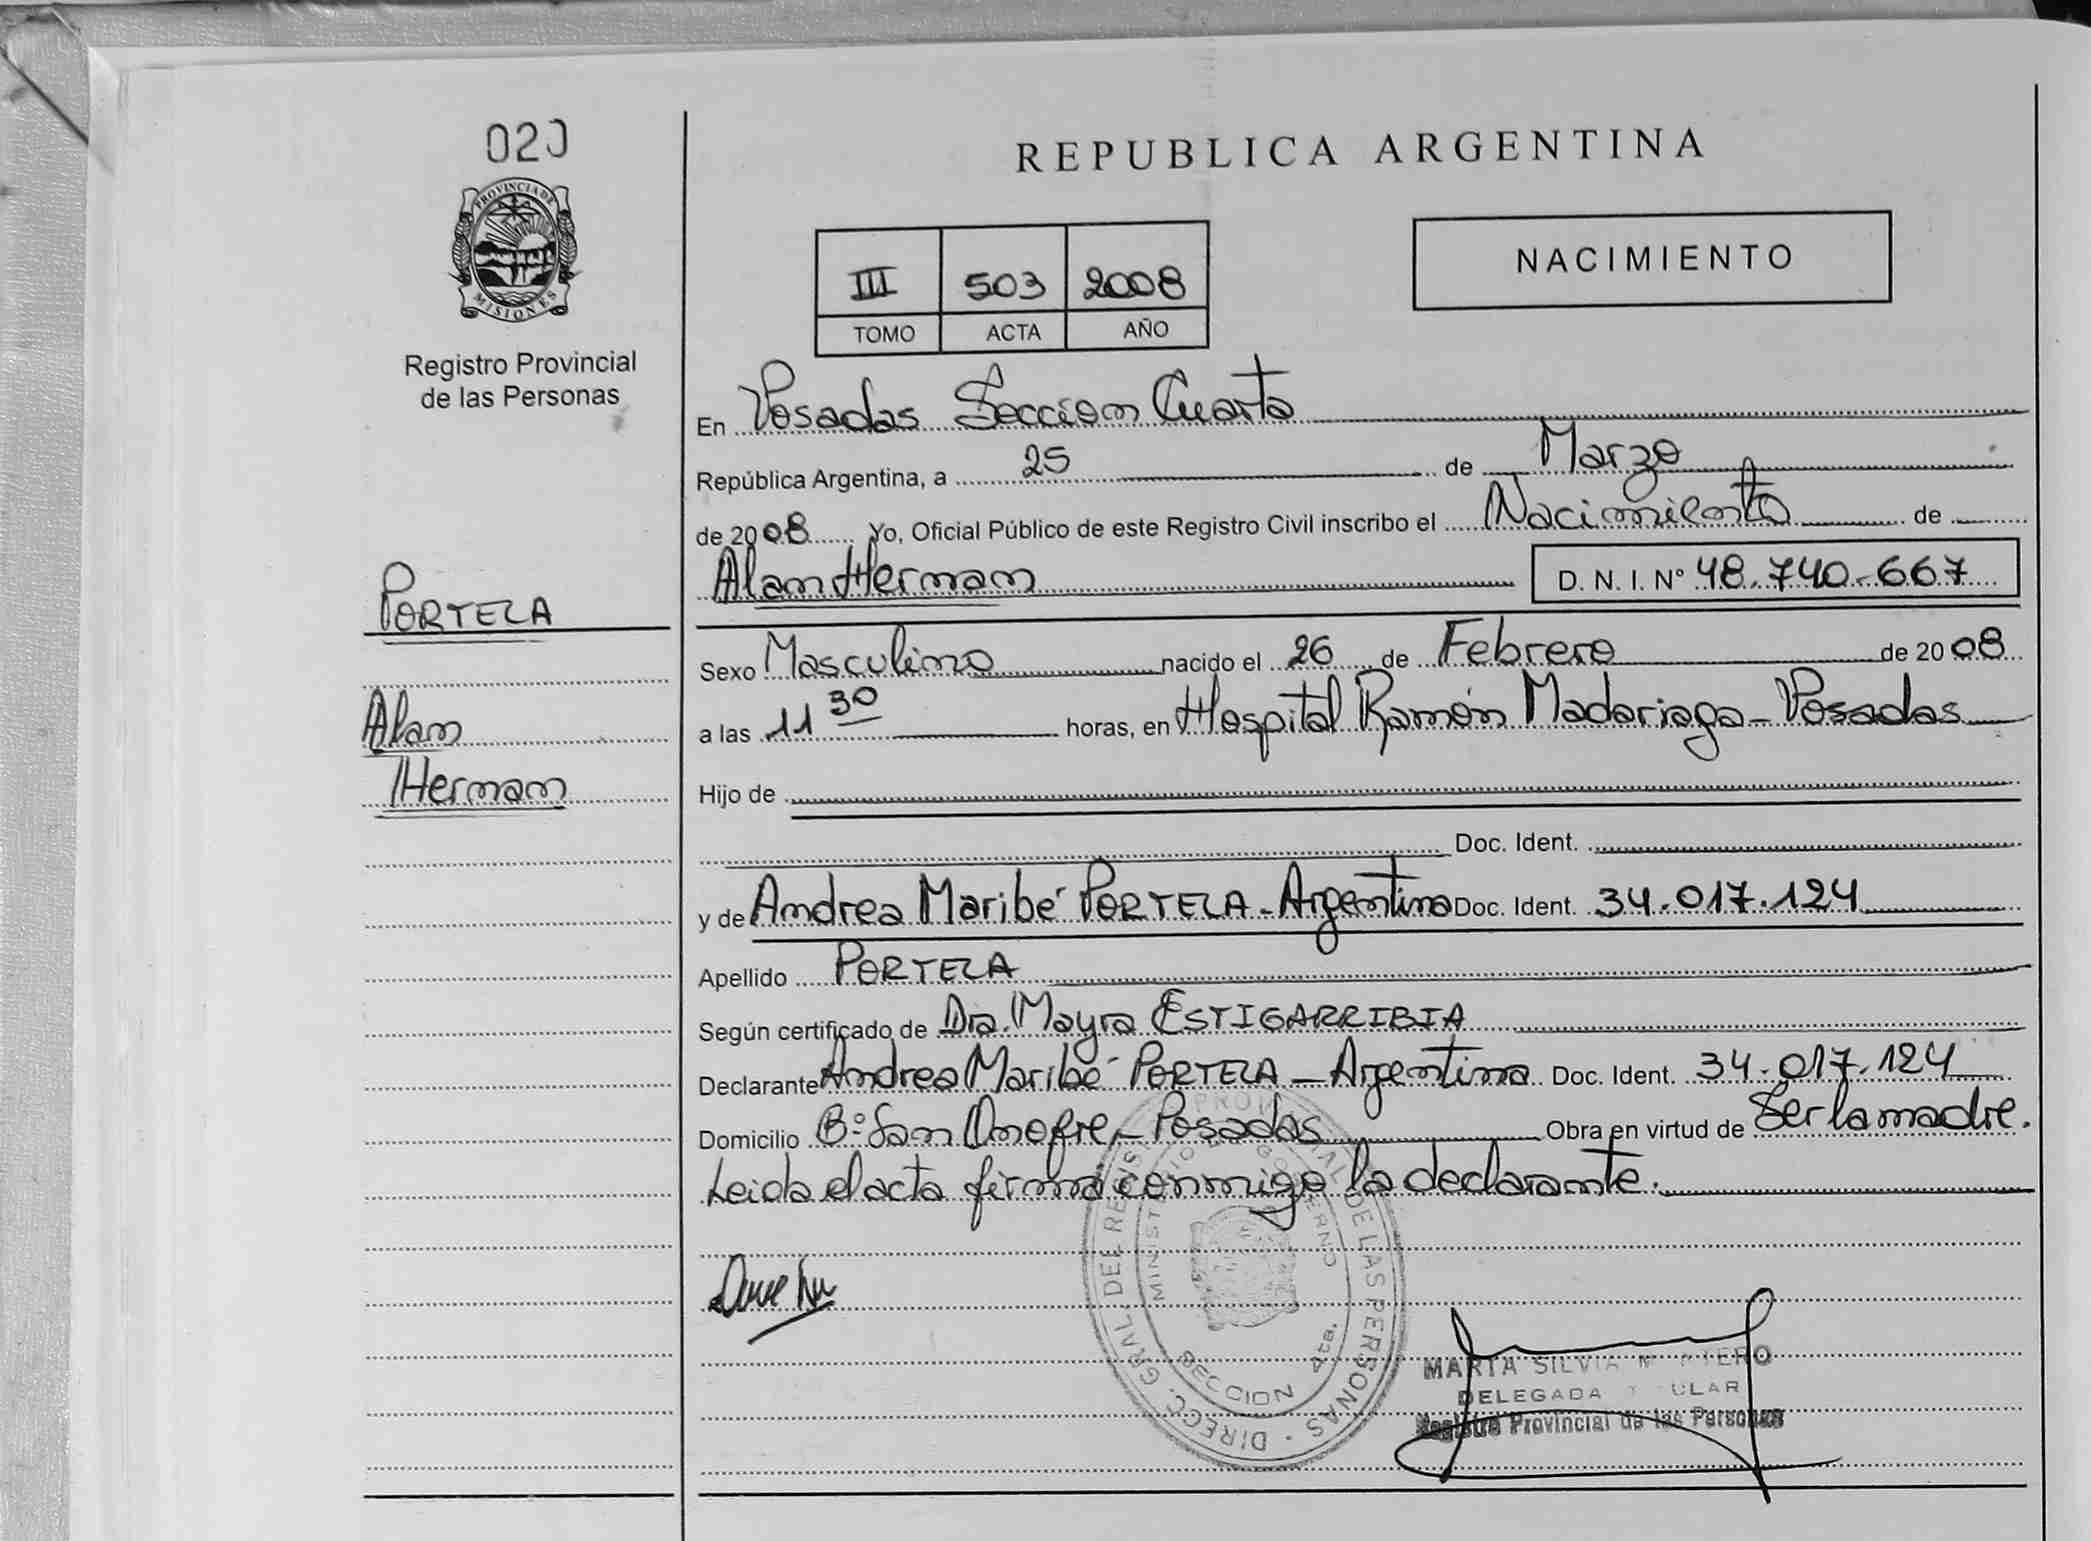 020
PROVINCIA DE
MISIONES
Registro Provincial
de las Personas
PORTELA
Alan
Hernan
REPUBLICA ARGENTINA
III 503 2008
TOMO ACTA AÑO
NACIMIENTO
En Posadas Sección Cuarta
República Argentina, a 25 de Marzo
de 2008 Yo, Oficial Público de este Registro Civil inscribo el Nacimiento de
Alan Hernan D. N. I. Nº 48.740.667
Sexo Masculino nacido el 26 de Febrero de 2008
a las 11 30 horas, en Hospital Ramón Madariaga - Posadas
Hijo de
Doc. Ident.
y de Andrea Maribé PORTELA - Argentina Doc. Ident. 34.017.124
Apellido PORTELA
Según certificado de Dra. Mayra ESTIGARRIBIA
Declarante Andrea Maribé PORTELA - Argentina Doc. Ident. 34.017.124
Domicilio Bº San Onofre - Posadas Obra en virtud de Ser la madre.
Leida el acta firma conmigo la declarante.
DIRECC. GRAL. DEL REGISTRO PROVINCIAL DE LAS PERSONAS
MINISTERIO DE GOBIERNO
SECCION 4ta.
MARTA SILVIA
DELEGADA TITULAR
Registro Provincial de las Personas